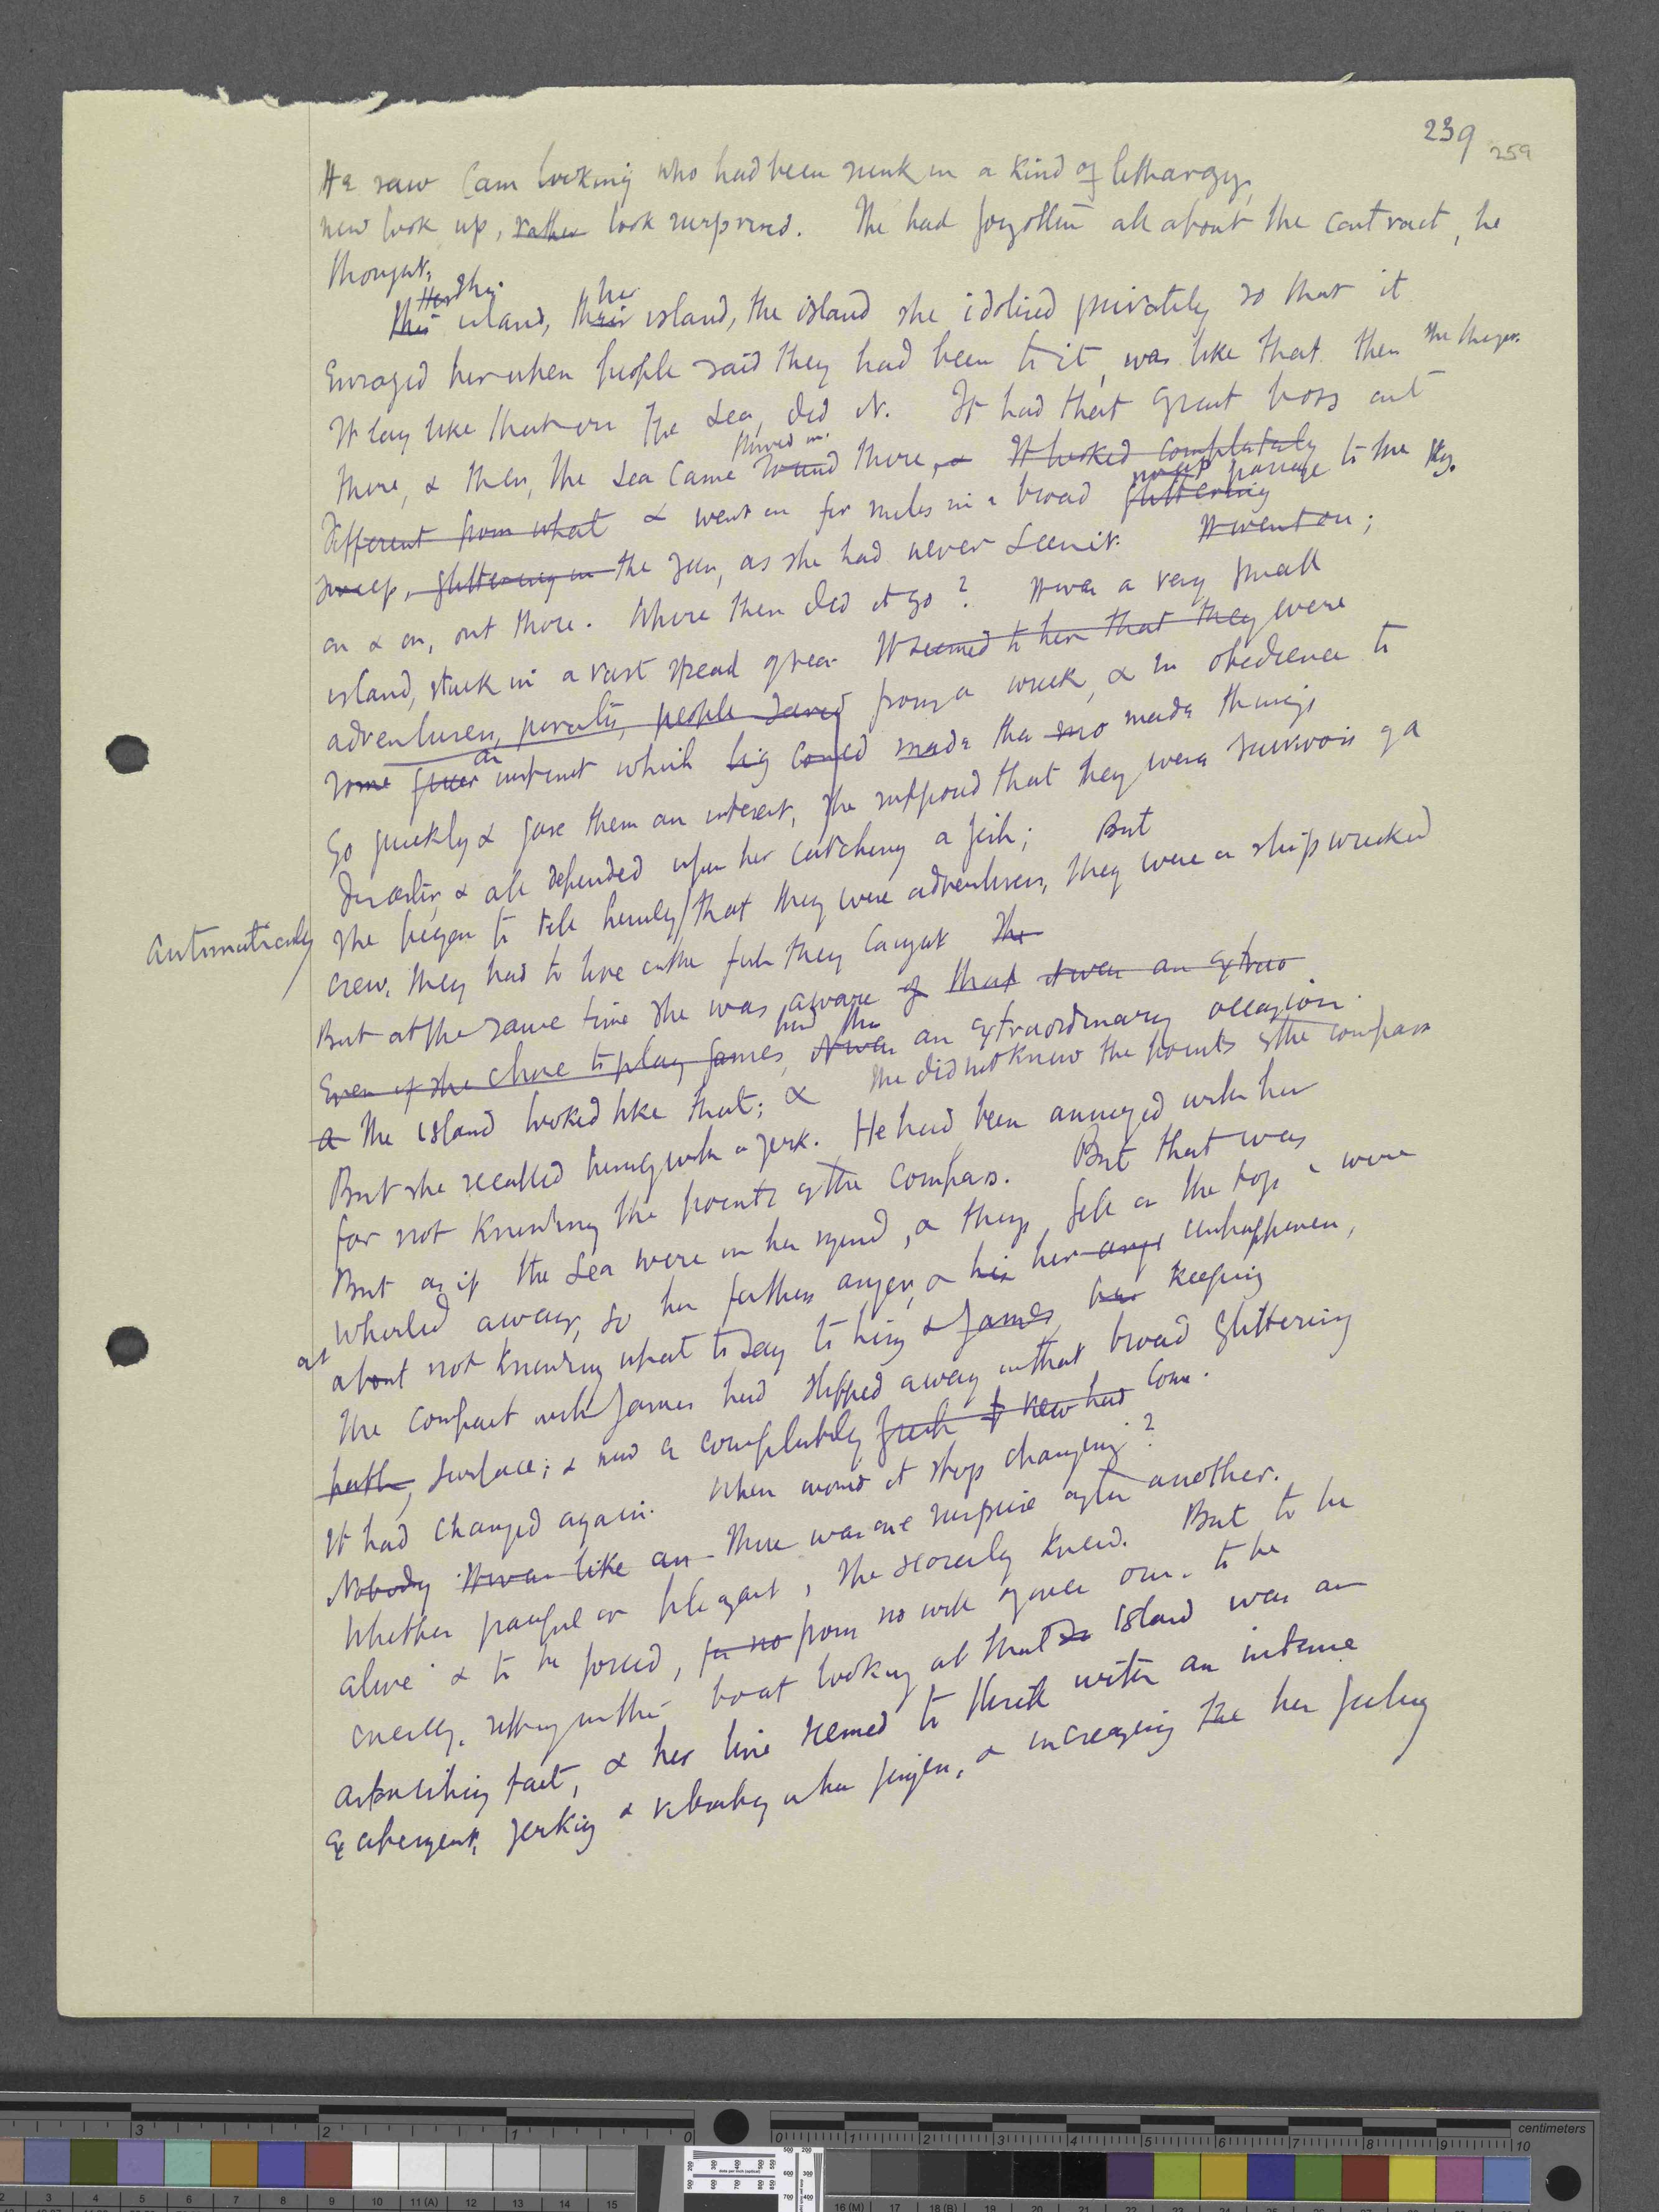 239
259
He saw Cam looking who had been sunk in a kind of lethargy,
now look up, rather look surprised. She had forgotten all about the contract, he
thought.
Her This
This island, their island, the island she idolised privately so that it
her
enraged her when people said they had been to it, was like that then
It lay like that on the sea, did it. It had that great boss out
there, & then, the sea came round there, & It looked completely
Different from what & went on for miles in a broad glittering passage to the sky.
sweep, glittering in the sun, as she had never seen it. It went on;
on & on, out there. Where then did it go? It was a very small
island, stuck in a vast spread of sea. It seemed to her that they were
adventurers, pirates, people saved from a wreck, & in obedience to
some instinct which made the made things
an
go quickly & gave them an interest, she supposed that they were survivors of a
disaster, & all depended upon her catching a fish; But
Automatically
She began to tell herself that they were adventurers, they were a shipwrecked
crew. They had to live on the fish they caught The
But at the same time she was aware of that it was an extrao
Even if she chose to play games, it was an extraordinary occasion.
a The island looked like that; & She did not know the points of the compass
But she recalled herself with a jerk. He had been annoyed with her
for not knowing the points of the compass. But that was
But as if the sea were in her mind, & things, fell on the top & were
whirled away, so her fathers anger, & his her ange unhappiness,
at
about not knowing what to say to him & James, her keeping
the compact with James had slipped away in that broad glittering
path, surface; & now a completely fresh & new had come.
It had changed again. When would it stop changing?
Nobody It was like an There was one surprise after another.
Whether painful or pleasant, she scarcely knew. But to be
alive & to be forced, from no wish of ones own to be
cruelly, sitting in this boat looking at that island was an
astonishing fact, & her line seemed to thrill with an intense
excitement, jerking & vibrating in her fingers, & increasing the her feeling